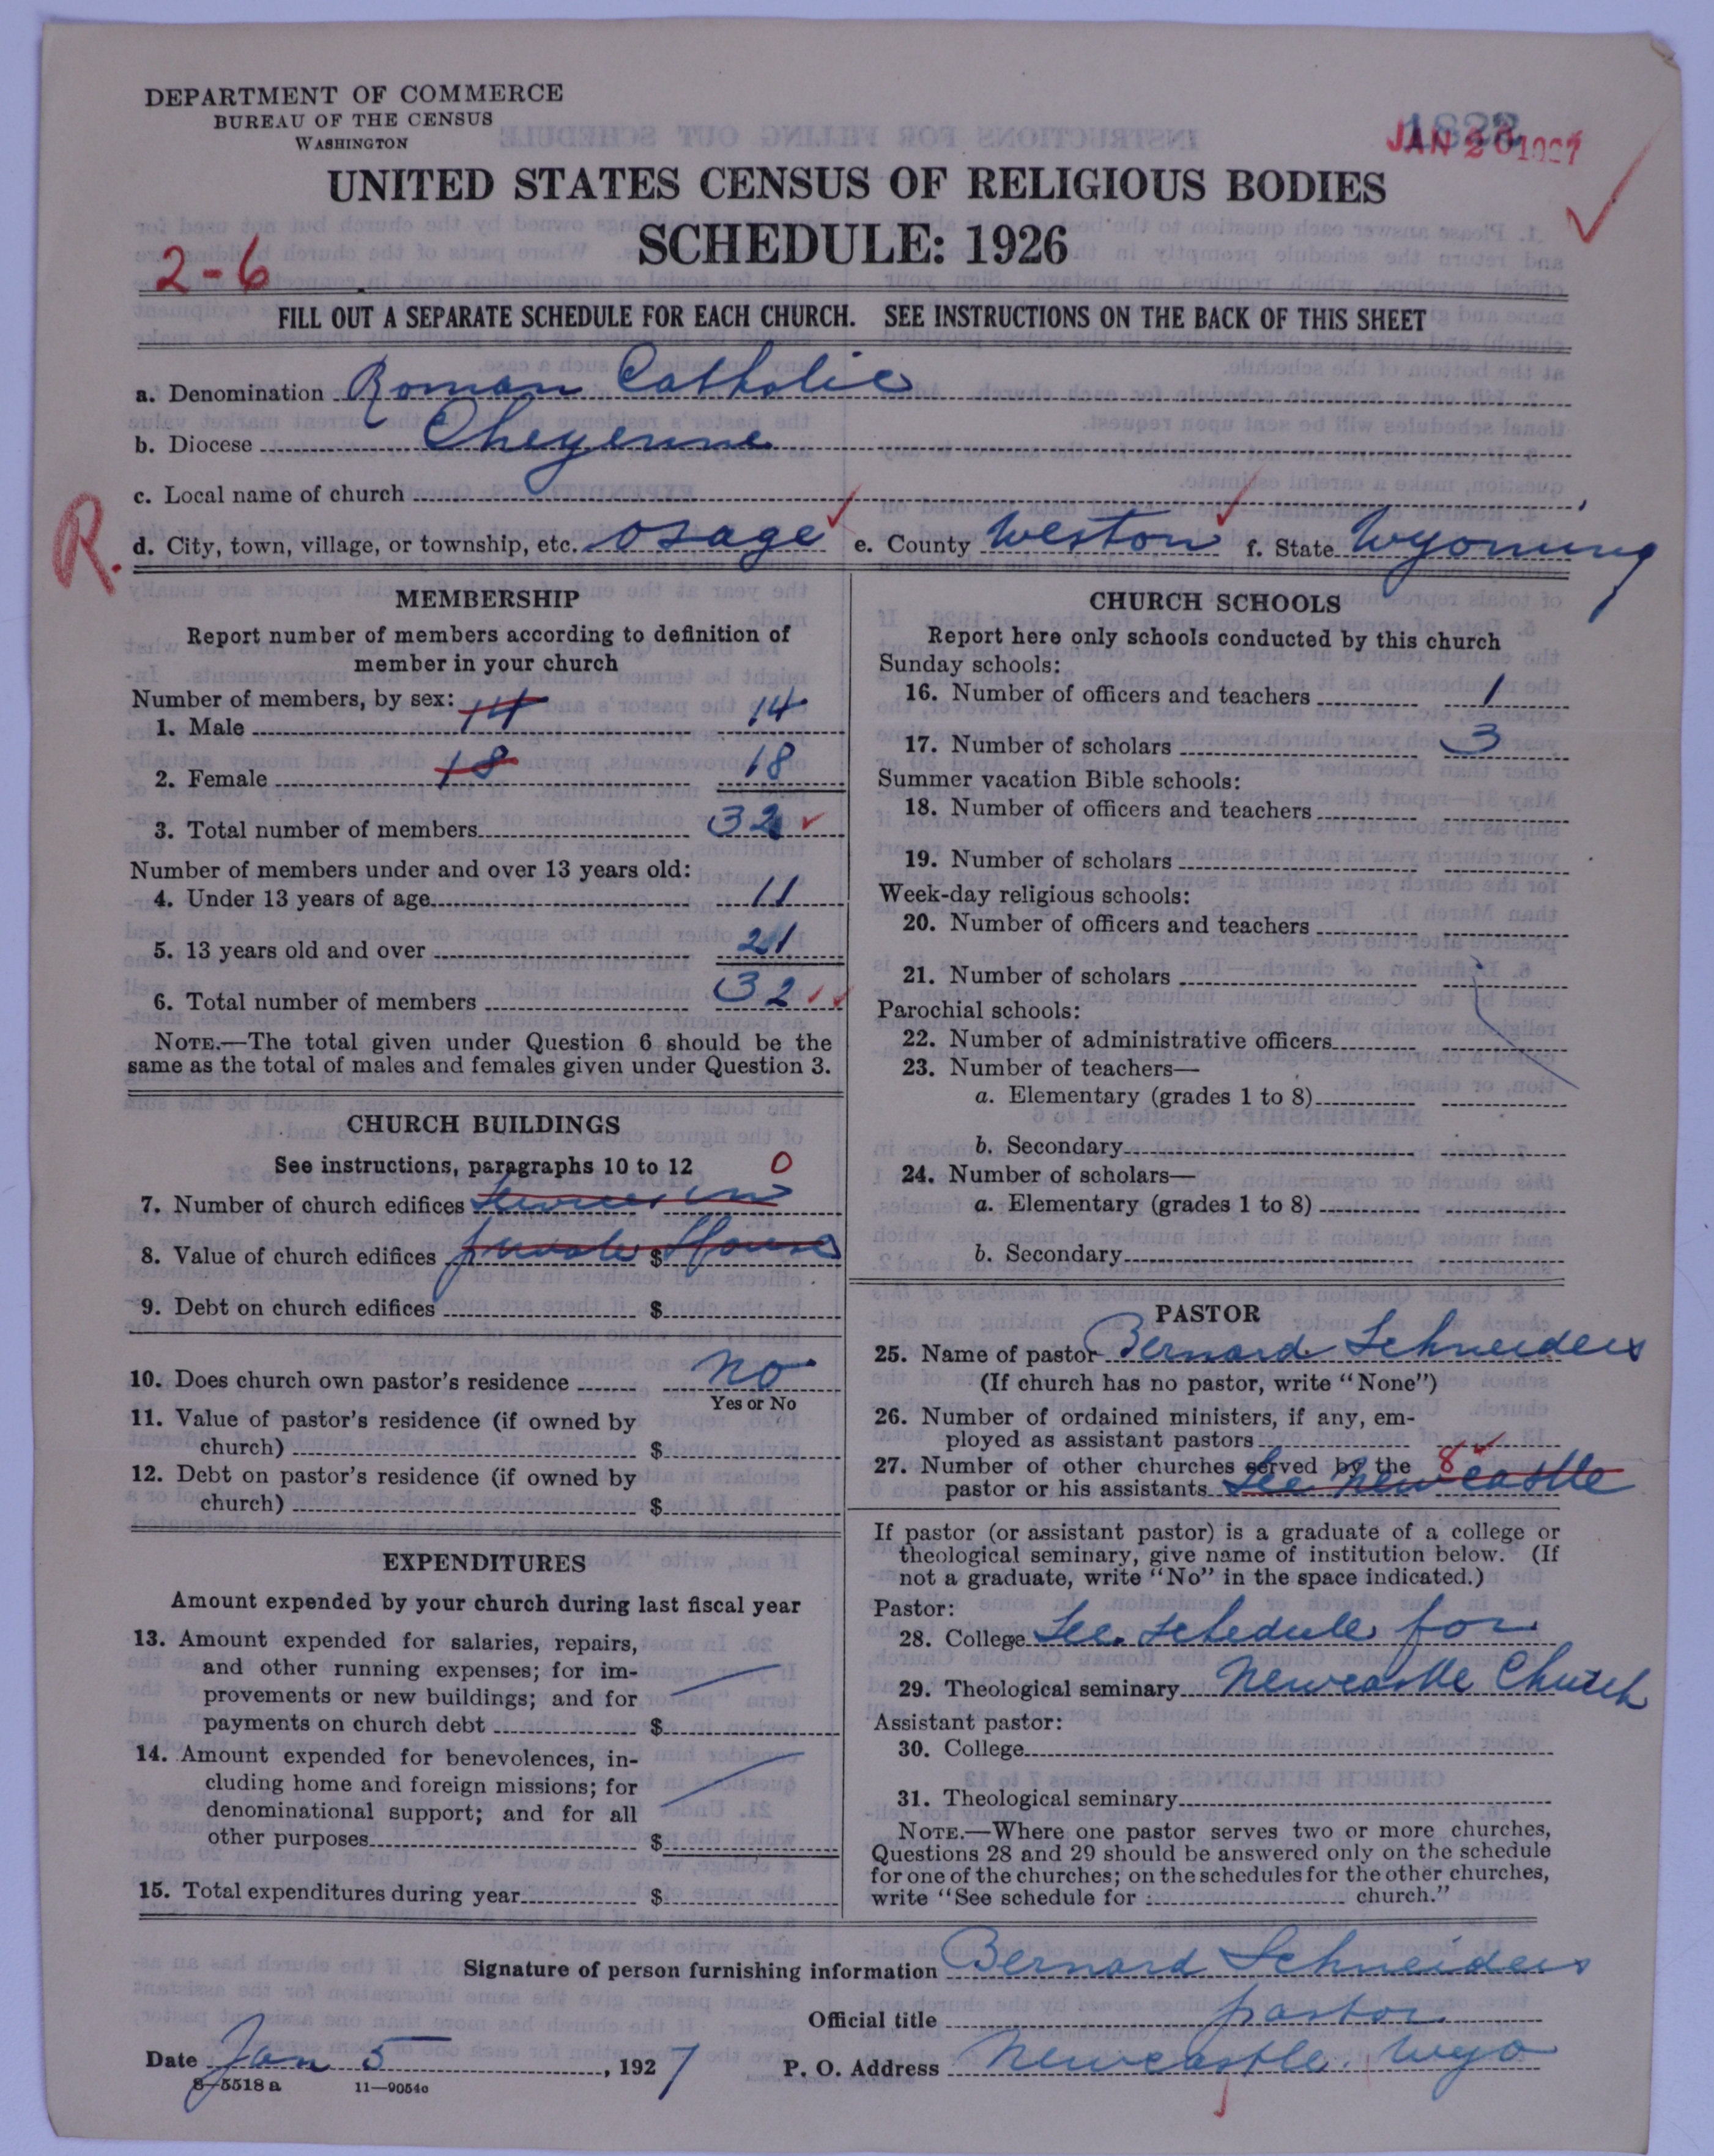 DEPARTMENT OF COMMERCE
BUREAU OF THE CENSUS
WASHINGTON
JAN 20 1927
UNITED STATES CENSUS OF RELIGIOUS BODIES
SCHEDULE: 1926
2-6
FILL OUT A SEPARATE SCHEDULE FOR EACH CHURCH. SEE INSTRUCTIONS ON THE BACK OF THIS SHEET
a. Denomination Roman Catholic
b. Diocese Cheyenne
c. Local name of church
R.
d. City, town, village, or township, etc. Osage e. County Weston f. State Wyoming
MEMBERSHIP
Report number of members according to definition of
member in your church
Number of members, by sex: 14
1. Male 14
2. Female 18 18
3. Total number of members 32
Number of members under and over 13 years old:
4. Under 13 years of age 11
5. 13 years old and over 21
6. Total number of members 32
NOTE.—The total given under Question 6 should be the
same as the total of males and females given under Question 3.
CHURCH BUILDINGS
See instructions, paragraphs 10 to 12 0
7. Number of church edifices Services in
8. Value of church edifices private $ House
9. Debt on church edifices $
10. Does church own pastor's residence no
Yes or No
11. Value of pastor's residence (if owned by
church) $
12. Debt on pastor's residence (if owned by
church) $
EXPENDITURES
Amount expended by your church during last fiscal year
13. Amount expended for salaries, repairs,
and other running expenses; for im-
provements or new buildings; and for
payments on church debt $
14. Amount expended for benevolences, in-
cluding home and foreign missions; for
denominational support; and for all
other purposes $
15. Total expenditures during year $
CHURCH SCHOOLS
Report here only schools conducted by this church
Sunday schools:
16. Number of officers and teachers 1
17. Number of scholars 3
Summer vacation Bible schools:
18. Number of officers and teachers
19. Number of scholars
Week-day religious schools:
20. Number of officers and teachers
21. Number of scholars
Parochial schools:
22. Number of administrative officers
23. Number of teachers—
a. Elementary (grades 1 to 8)
b. Secondary
24. Number of scholars—
a. Elementary (grades 1 to 8)
b. Secondary
PASTOR
25. Name of pastor Bernard Schneiders
(If church has no pastor, write "None")
26. Number of ordained ministers, if any, em-
ployed as assistant pastors
27. Number of other churches served by the 8
pastor or his assistants See Newcastle
If pastor (or assistant pastor) is a graduate of a college or
theological seminary, give name of institution below. (If
not a graduate, write "No" in the space indicated.)
Pastor:
28. College See schedule for
29. Theological seminary Newcastle Church
Assistant pastor:
30. College
31. Theological seminary
NOTE.—Where one pastor serves two or more churches,
Questions 28 and 29 should be answered only on the schedule
for one of the churches; on the schedules for the other churches,
write "See schedule for : church."
Signature of person furnishing information Bernard Schneiders
Official title pastor
Date Jan 5, 1927 P. O. Address Newcastle. Wyo
8-5518 a 11-9054c